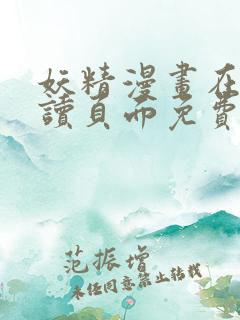 妖精漫畫在
讀頁面免費
范振增
未经同意禁止转载